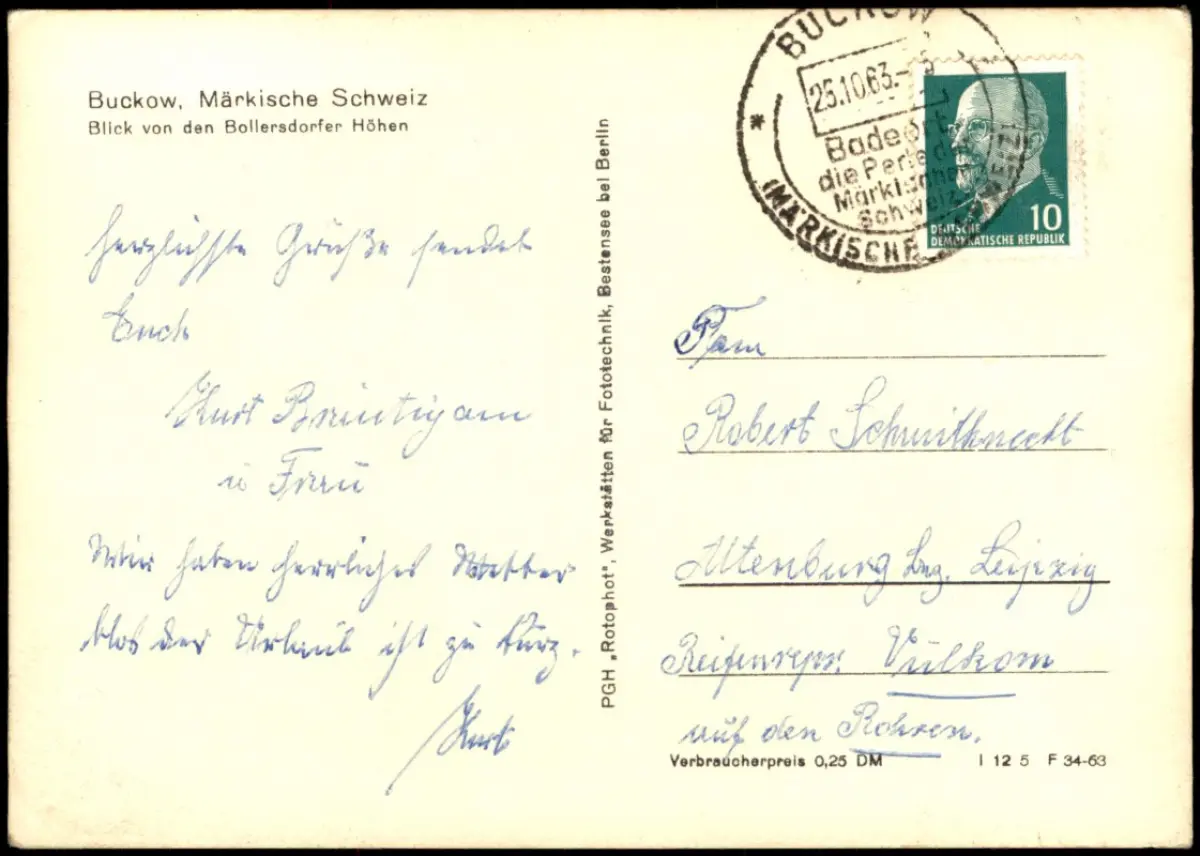 Buckow, Märkische Schweiz
Blick von den Bollersdorfer Höhen
Herzlichste Grüße sendet
Euch
Kurt Bräutigam
u Frau
Wir haben herrliches Wetter
blos der Urlaub ist zu kurz.
Kurt
PGH „Rotophot", Werkstätten für Fototechnik, Bestensee bei Berlin
BUCKOW
25.10.63.-
Badeort
die Perle der
Märkischen
Schweiz
(MÄRKISCHE
10
DEUTSCHE
DEMOKRATISCHE REPUBLIK
Fam
Robert Schmittknecht
Altenburg Bez. Leipzig
Reifenrepr. Vulkom
auf den Rohren.
Verbraucherpreis 0,25 DM I 12 5 F 34-63